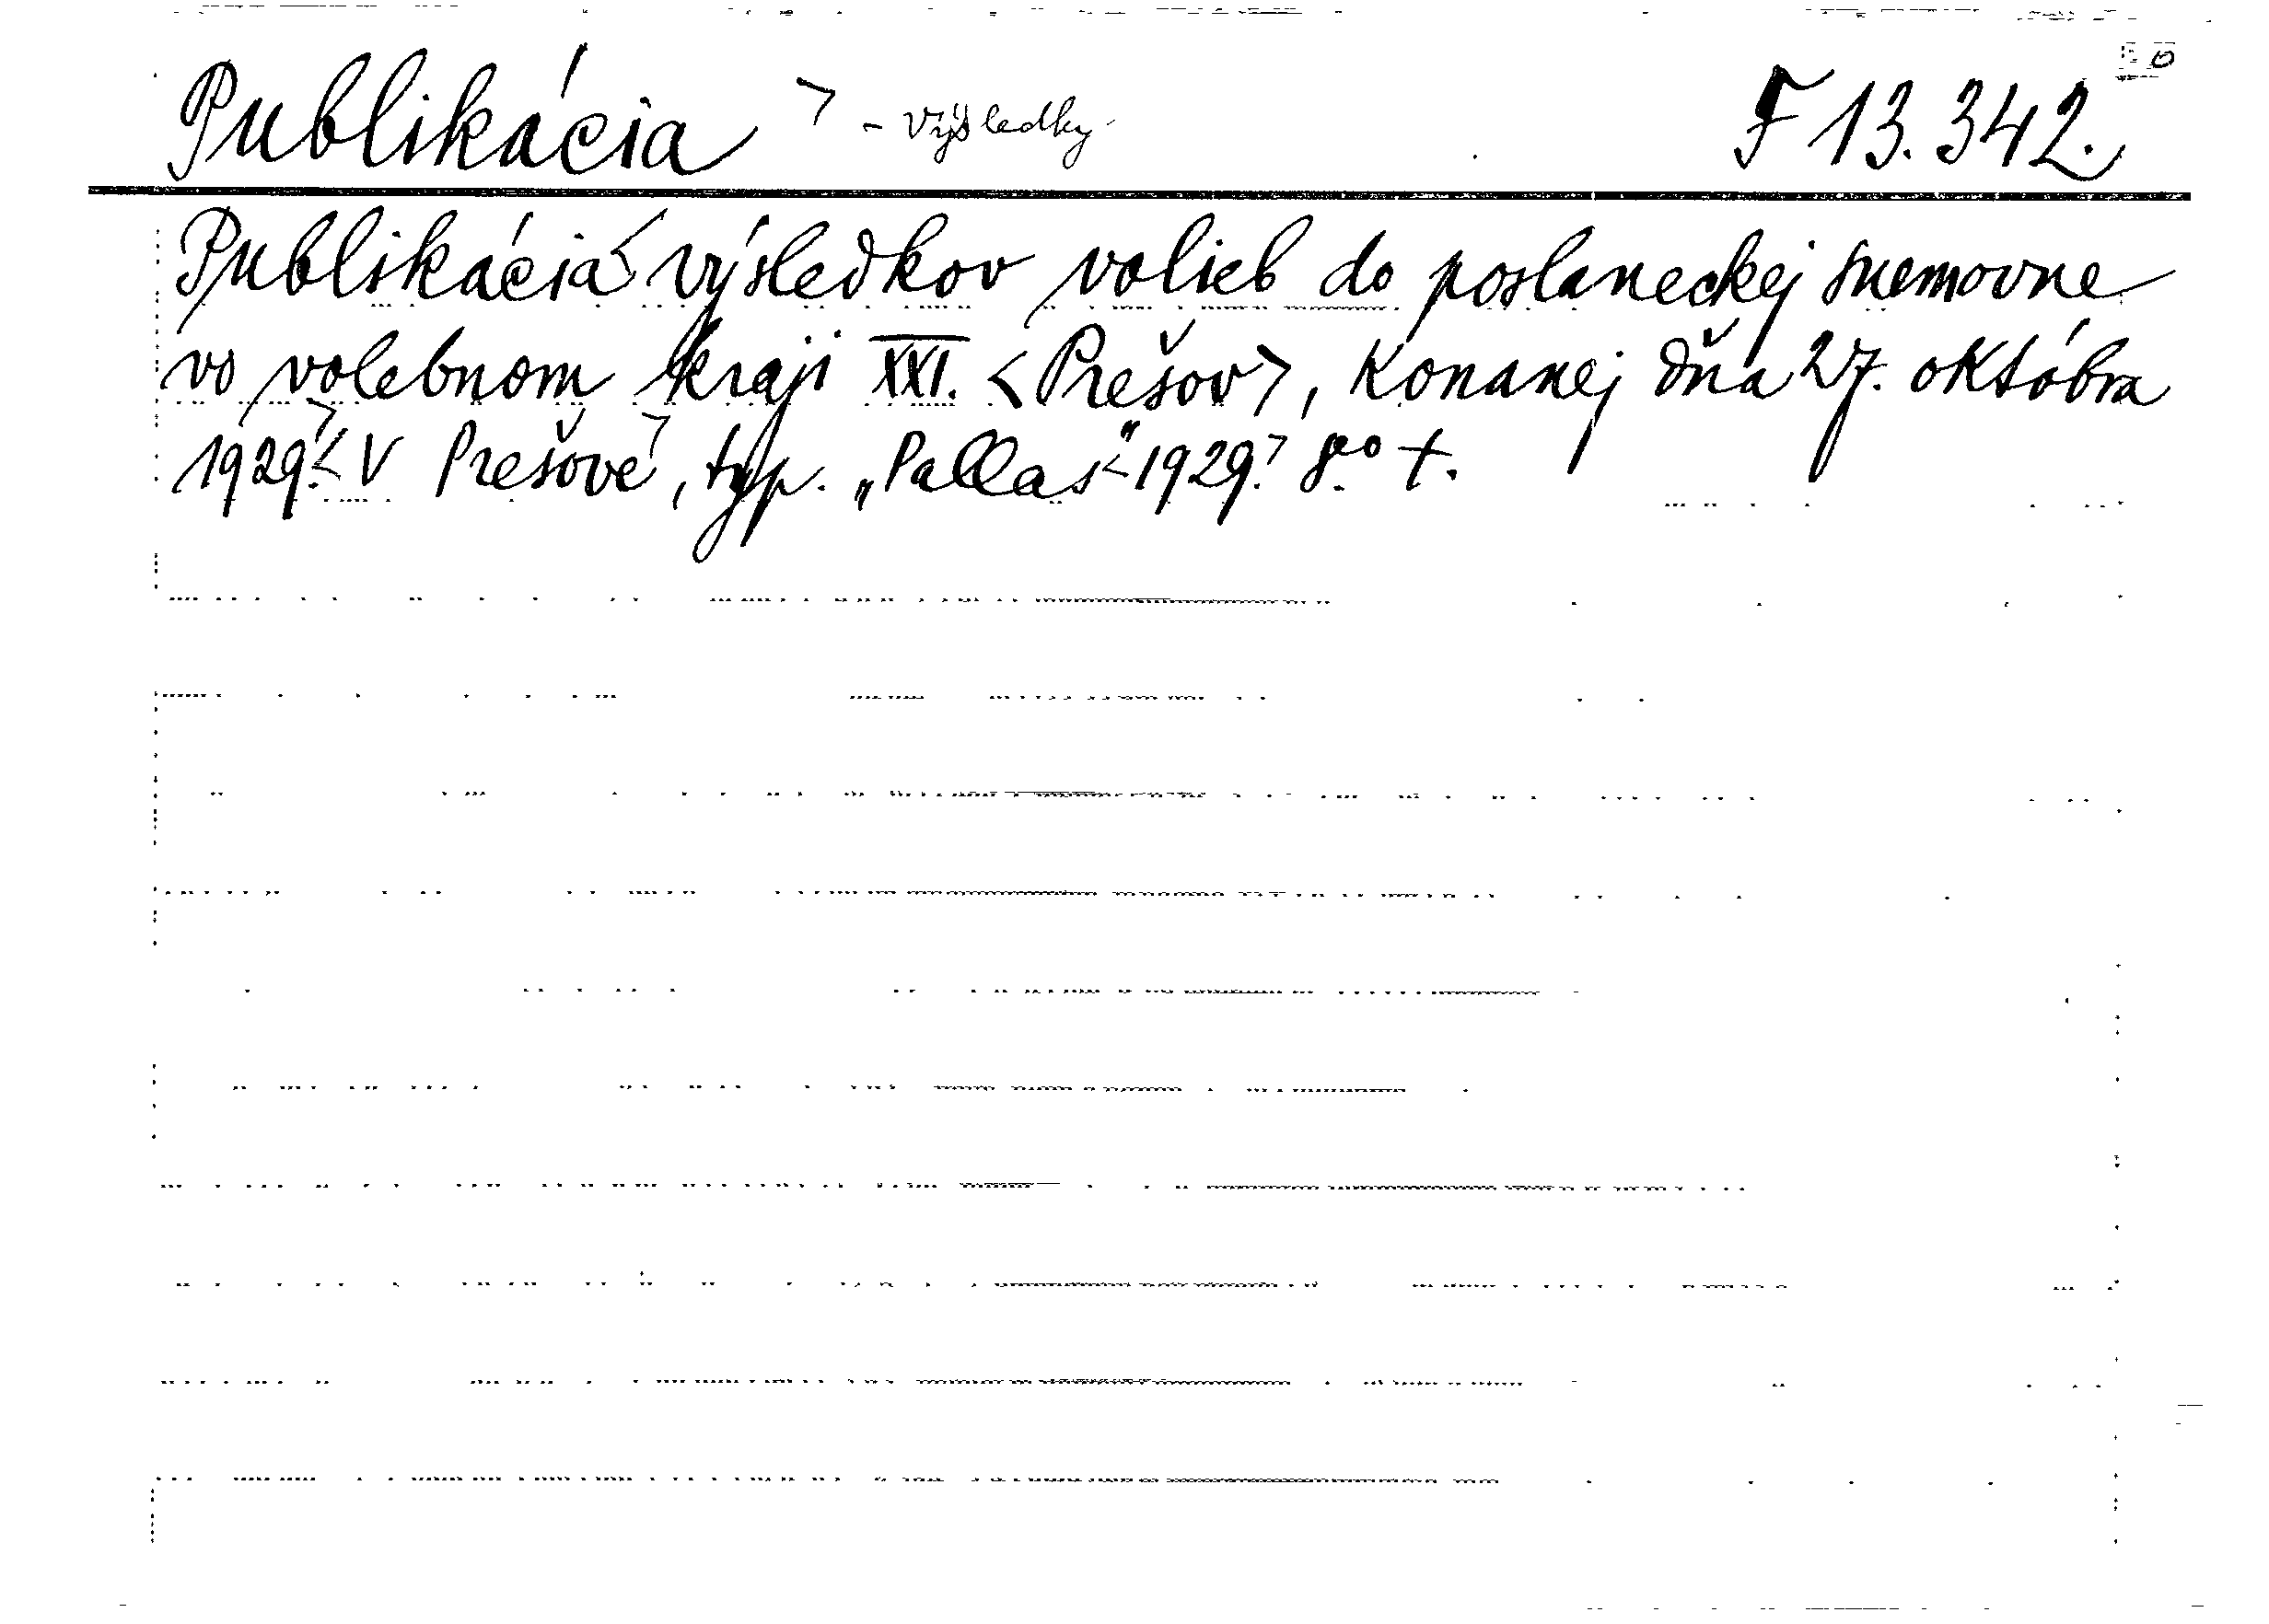 Publikácia > - výsledky F 13.342.
Publikácia < výsledkov volieb do poslaneckej snemovne
vo volebnom kraji XXI. <Prešov>, konanej dňa 27. októbra
1929. > < V Prešove >, typ. „Pallas“ < 1929. > 8o t.